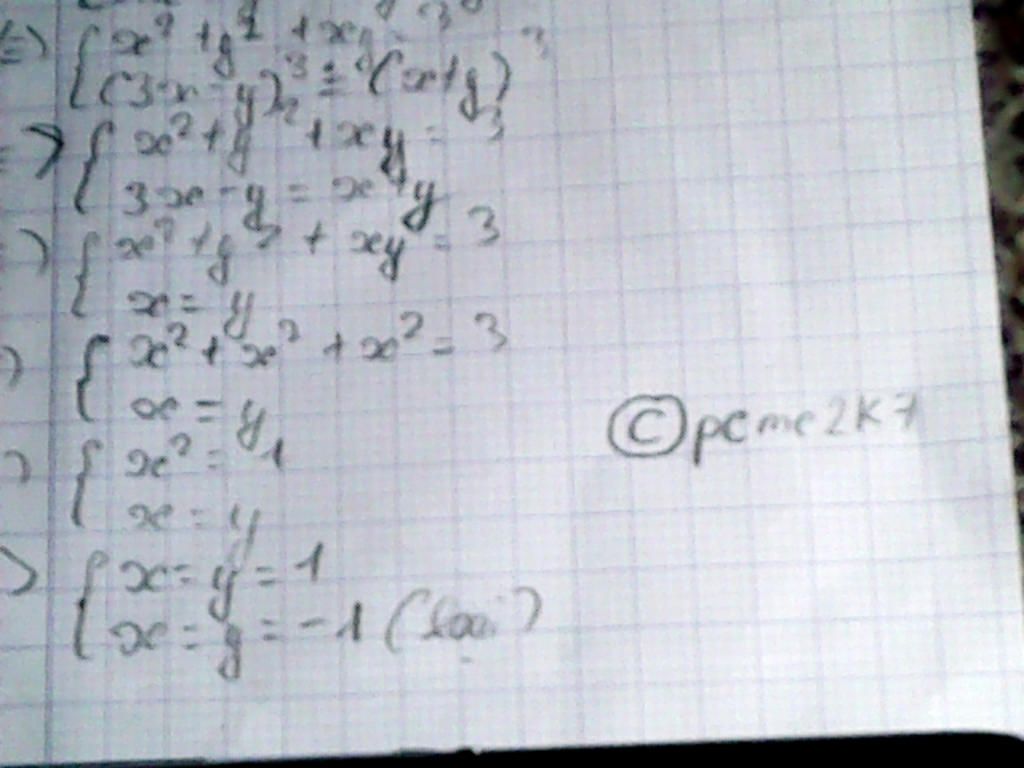 { x² + y² + xy = 3
(3x - y)³ = (x+y)³
=> { x² + y² + xy = 3
3x - y = x + y
{ x² + y² + xy = 3
x = y
{ x² + x² + x² = 3
x = y
{ x² = 1
x = y
{ x = y = 1
x = y = -1 (loại)
© pcme2k7